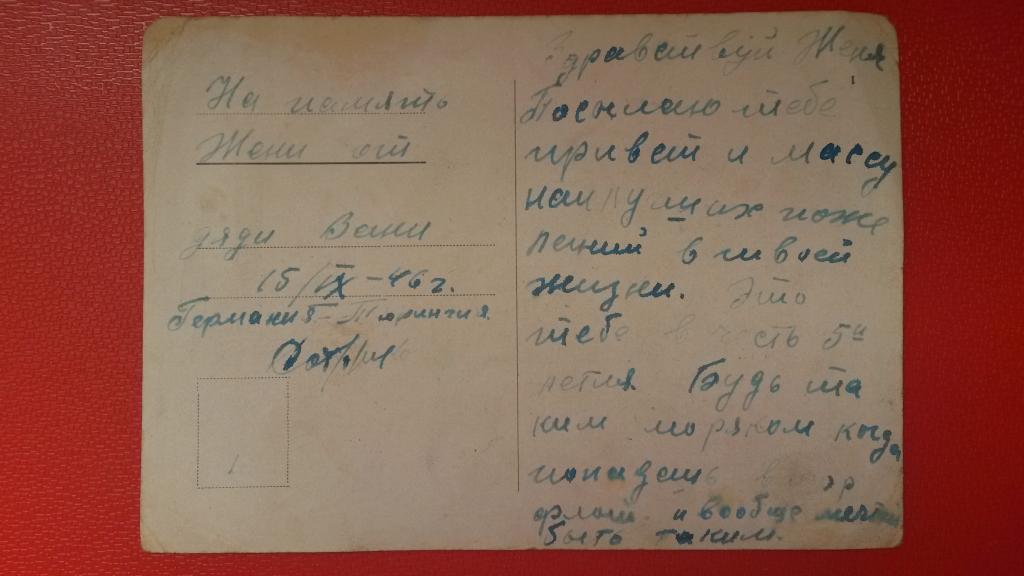 На память
Жени от
дяди Вани
15/IX-46г.
Германия-Тюрингия
Здравствуй Женя
Посылаю тебе
привет и массу
наилучших поже
ланий в твоей
жизни. Это
тебе в честь 5и
летия. Будь та
ким моряком когда
попадешь в
флот и вообще мечтай
быть таким.